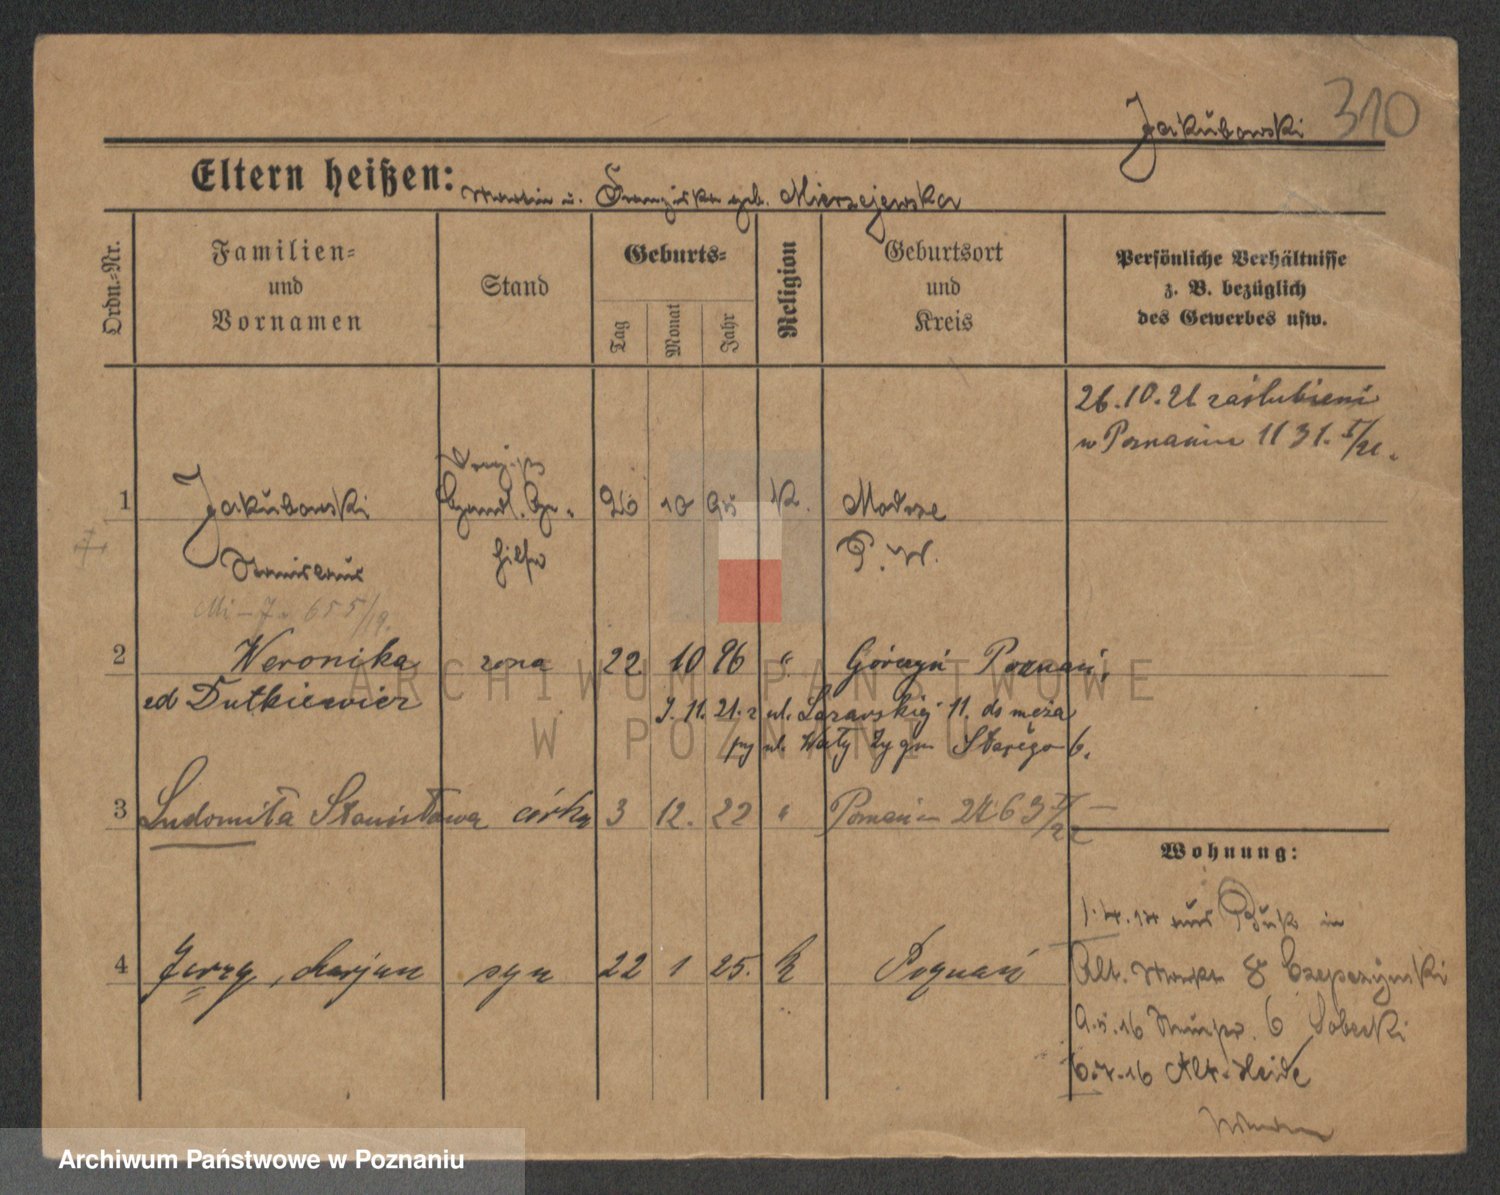 310
Jakubowski
Eltern heißen: Martin u. Franziska geb. Mierzejewska
Ordn.=Nr.
Familien=
und
Vornamen
Stand
Geburts=
Tag
Monat
Jahr
Religion
Geburtsort
und
Kreis
Persönliche Verhältnisse
z. B. bezüglich
des Gewerbes usw.
26.10.21 zaślubieni
w Poznaniu 1131. I/21.
1 Jakubowski Handl. Ge- 26 10 95 K. Modrze
hilfe P. W.
Stanislaus
655/19.
2 Weronika żona 22 10 96 " Górczyn Poznań,
zd Dutkiewicz
9.11.21. z ul. Łazarskiej 11. do męża
przy ul. Wały Zygm Starego 6.
3 Ludomiła Stanisława córka 3 12. 22 " Poznań 2463 II/22
Wohnung:
1.4.14 aus Buk in
Alt. Markt 8 Czepczynski
9.5.16 6 Sobecki
6.7.16 Alt-Heide
4 Jerzy, Marjan syn 22 1 25. K Poznań
ARCHIWUM PAŃSTWOWE
W POZNANIU
Archiwum Państwowe w Poznaniu